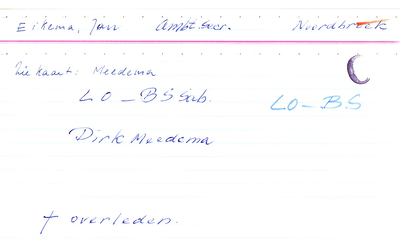 Eikema, Jan Ambt.secr. Noordbroek
Zie kaart: Meedema
LO - BS Sub. LO - BS
Dirk Meedema
† overleden.